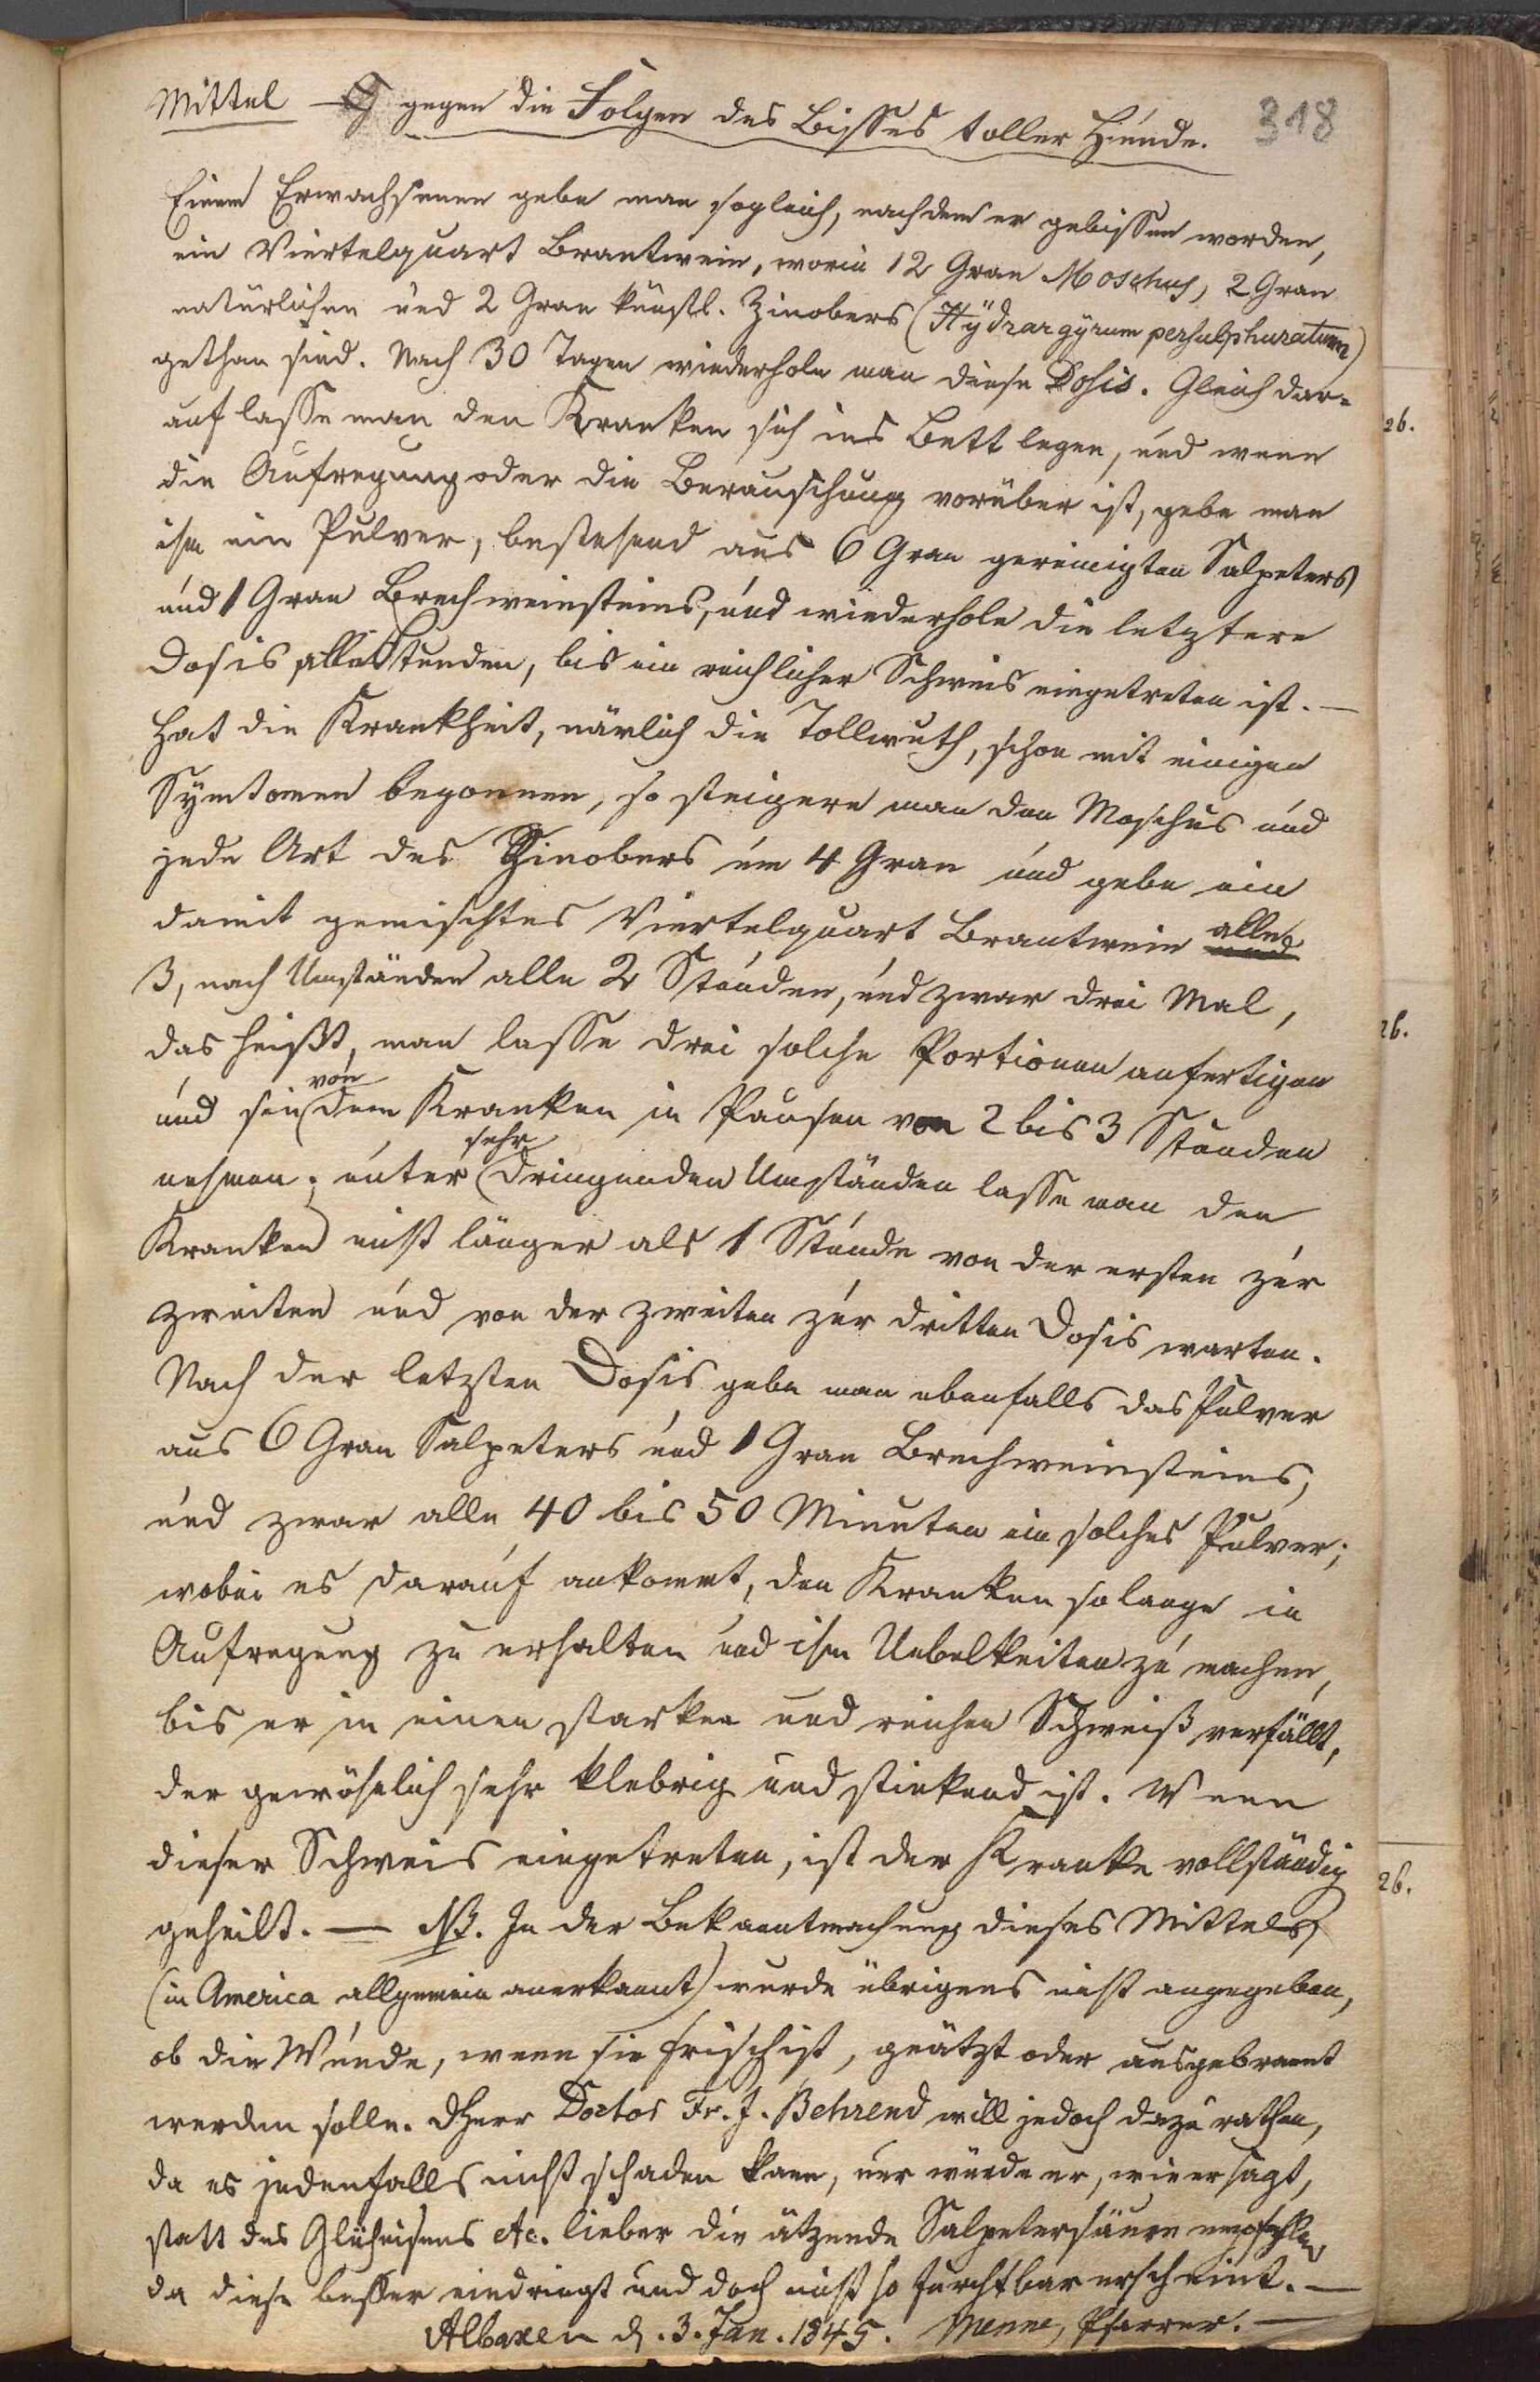 Mittel gegen die Folgen des Bisses toller Hunde.
318
Einem Erwachsenen gebe man sogleich, nachdem er gebissen worden,
ein Viertelquart Brantwein, worin 12 Gran Moschus, 2 Gran
natürlichen und 2 Gran künstl. Zinobers (Hÿdrargÿrum persulphuratum)
gethan sind. Nach 30 Tagen wiederhole man diese Dosis. Gleich dar=
auf lasse man den Kranken sich ins Bett legen, und wenn
die Aufregung oder die Berauschung vorüber ist, gebe man
ihm ein Pulver, bestehend aus 6 Gran gereinigten Salpeters
und 1 Gran Brechweinsteins, und wiederhole die letztere
Dosis alle Stunden, bis ein reichlicher Schweis eingetreten ist. —
Hat die Krankheit, nämlich die Tollwuth, schon mit einigen
Symtomen begonnen, so steigere man den Moschus und
jede Art des Zinobers um 4 Gran und gebe ein
damit gemischtes Viertelquart Brantwein alle
3, nach Umständen alle 2 Stunden, und zwar drei Mal,
das heißt, man lasse drei solche Portionen anfertigen
und sie von dem Kranken in Pausen von 2 bis 3 Stunden
nehmen; unter sehr dringenden Umständen lasse man den
Kranken nicht länger als 1 Stunde von der ersten zur
zweiten und von der zweiten zur dritten Dosis warten.
Nach der letzten Dosis gebe man ebenfalls das Pulver
aus 6 Gran Salpeters und 1 Gran Brechweinsteins,
und zwar alle 40 bis 50 Minuten ein solches Pulver;
wobei es darauf ankommt, den Kranken so lange in
Aufregung zu erhalten und ihm Uebelkeiten zu machen,
bis er in einen starken und reichen Schweiß verfällt,
der gewöhnlich sehr klebrig und stinkend ist. Wenn
dieser Schweis eingetreten, ist der Kranke vollständig
geheilt. — NB. In der Bekanntmachung dieses Mittels
(in America allgemein anerkannt) wurde übrigens nicht angegeben,
ob die Wunde, wenn sie frisch ist, geätzt oder ausgebrannt
werden solle. Herr Doctor Fr. J. Behrend will jedoch dazu rathen,
da es jedenfalls nicht schaden kann, nur würde er, wie er sagt,
statt des Glüheisens etc. lieber die ätzende Salpetersäure empfehlen
da diese besser eindringt und doch nicht so furchtbar erscheint. —
Albaxen d. 3. Jan. 1845. Menne, Pfarrer. —
26.
26.
26.